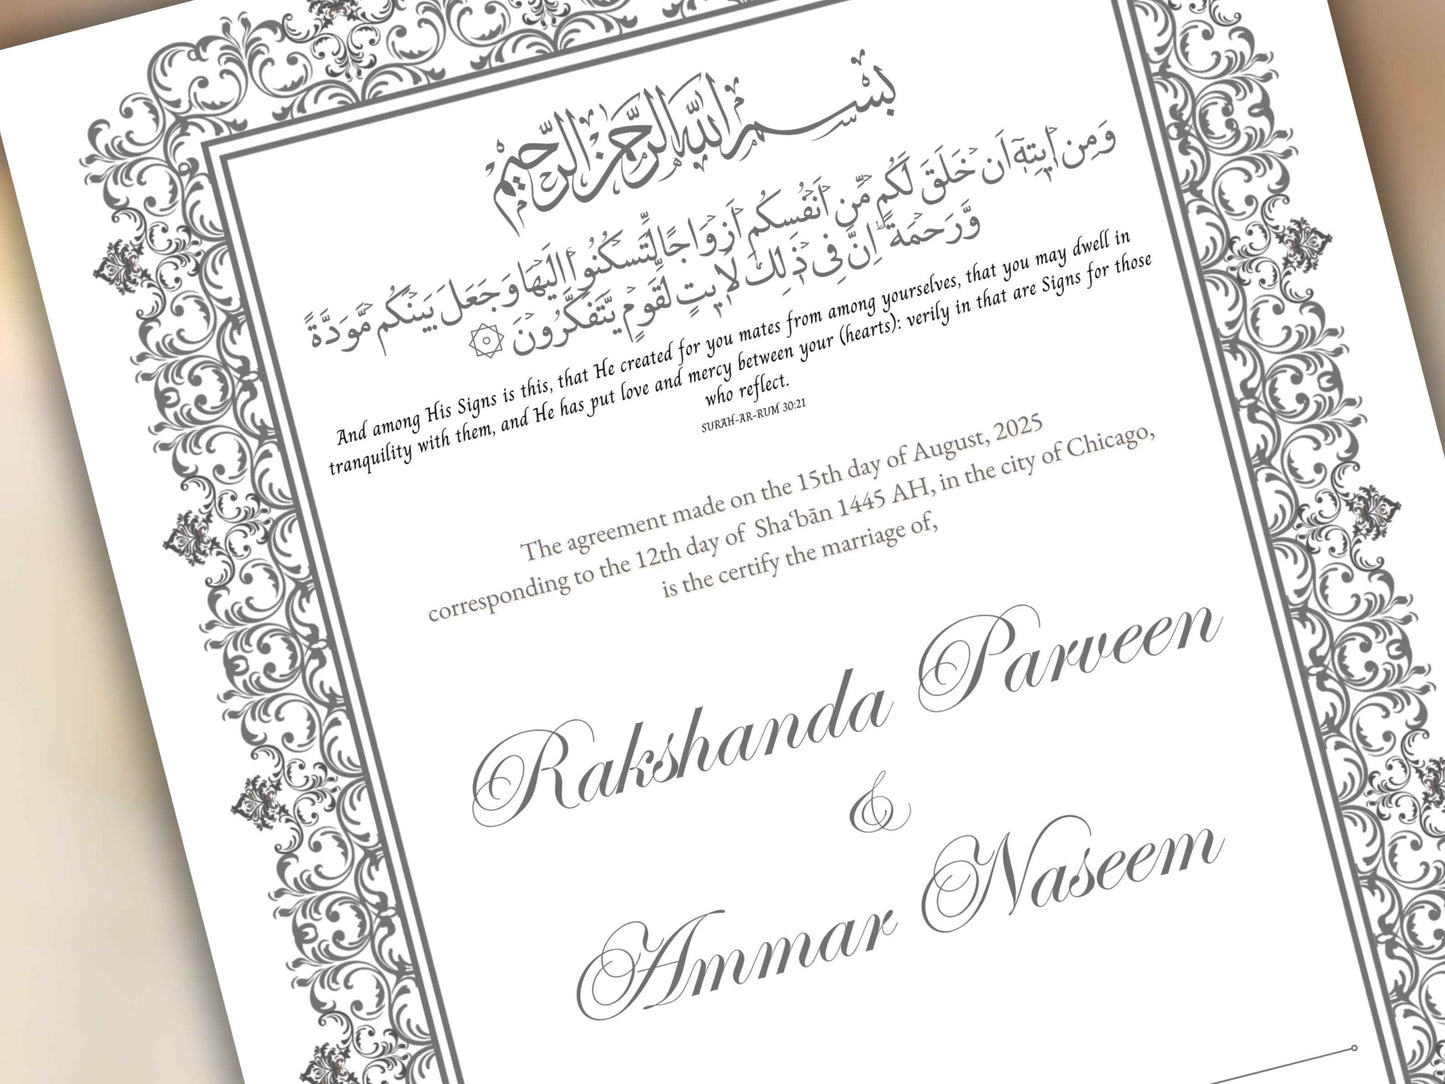 بِسْمِ اللَّهِ الرَّحْمَٰنِ الرَّحِيمِ
وَمِنْ اٰيٰتِهٖٓ اَنْ خَلَقَ لَكُمْ مِّنْ اَنْفُسِكُمْ اَزْوَاجًا لِّتَسْكُنُوْٓا اِلَيْهَا وَجَعَلَ بَيْنَكُمْ مَّوَدَّةً
وَّرَحْمَةً ۗ اِنَّ فِيْ ذٰلِكَ لَاٰيٰتٍ لِّقَوْمٍ يَّتَفَكَّرُوْنَ ۞
And among His Signs is this, that He created for you mates from among yourselves, that you may dwell in
tranquility with them, and He has put love and mercy between your (hearts): verily in that are Signs for those
who reflect.
SURAH-AR-RUM 30:21
The agreement made on the 15th day of August, 2025
corresponding to the 12th day of Sha‘bān 1445 AH, in the city of Chicago,
is the certify the marriage of,
Rakshanda Parveen
&
Ammar Naseem